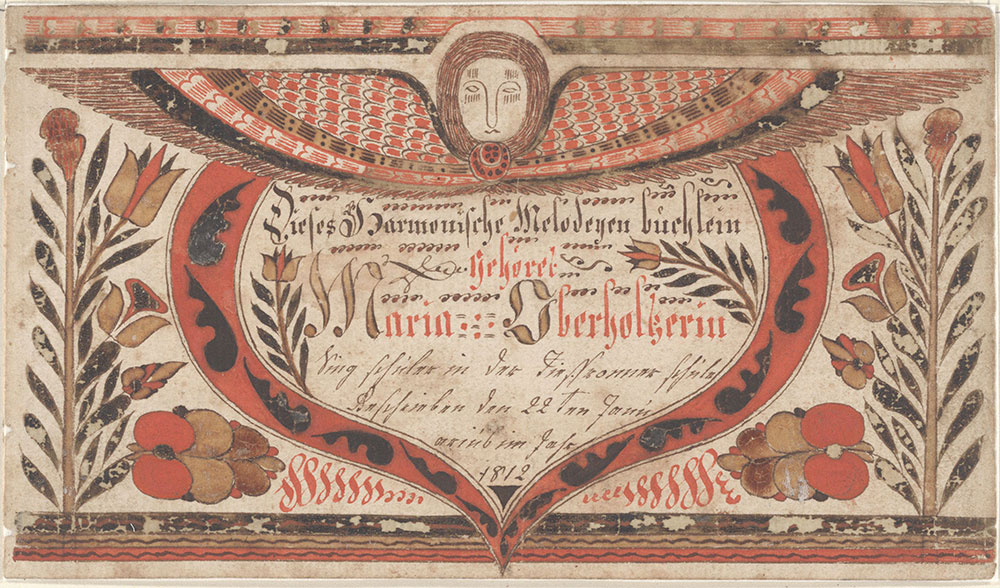 Dieses Harmonische Melodeyen büchlein
Gehöret
Maria Oberholtzerin
Sing schüler in der schule
Beschrieben den 22ten Janu
arius im Jahr
1812